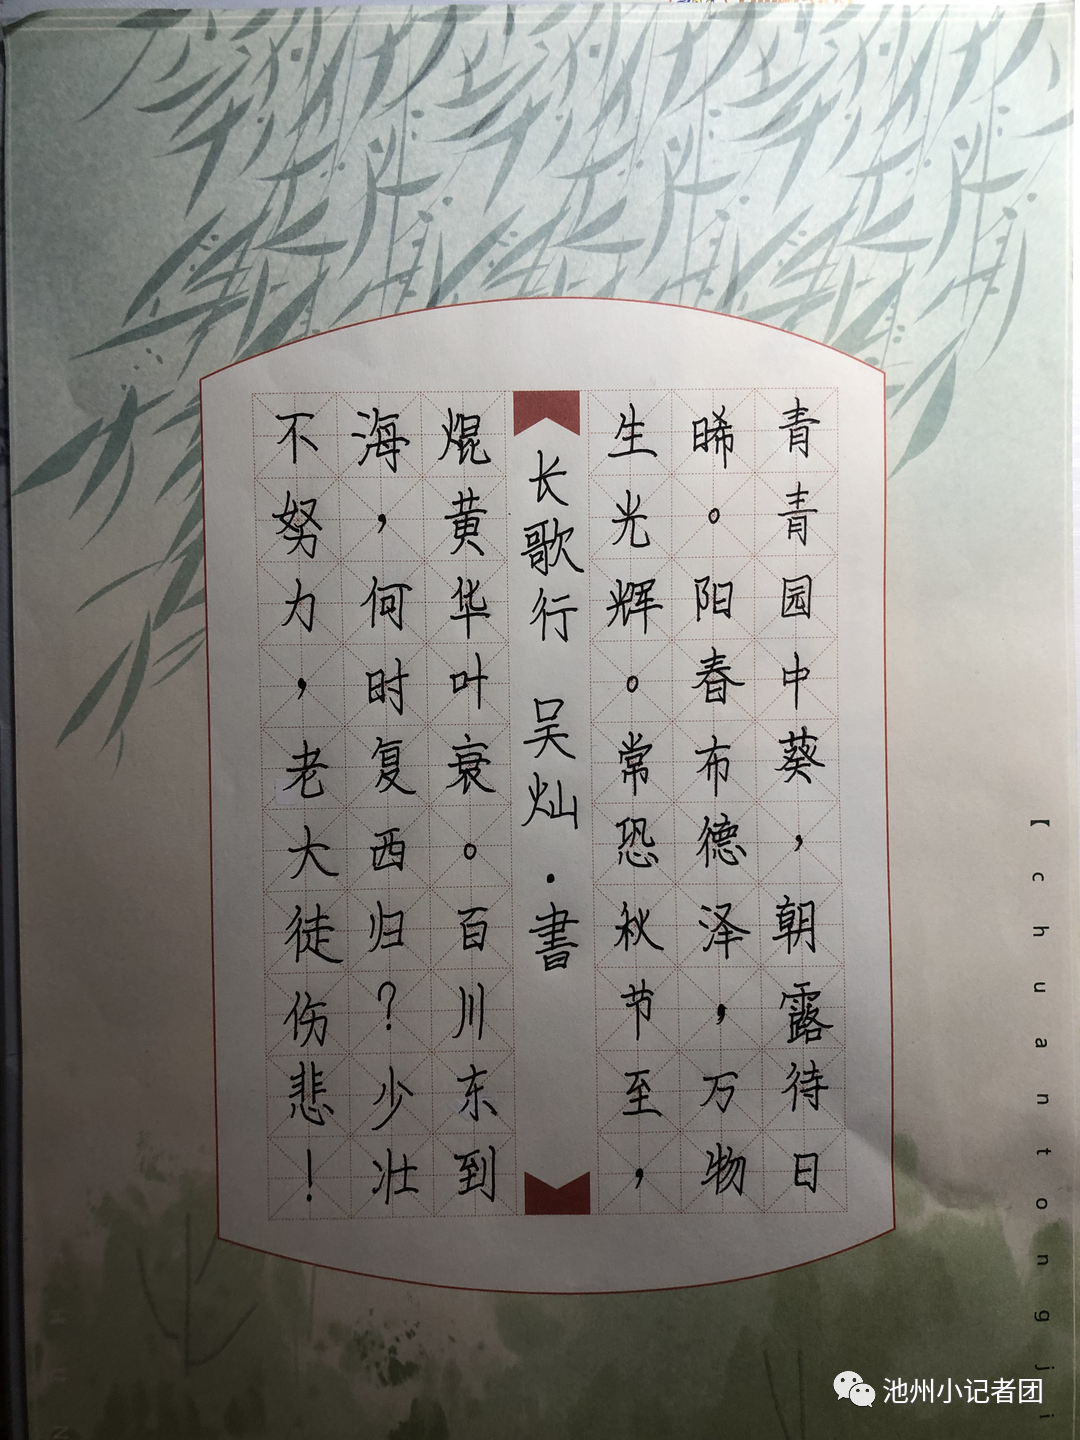 青青园中葵，朝露待日
晞。阳春布德泽，万物
生光辉。常恐秋节至，
长歌行 吴灿·書
焜黄华叶衰。百川东到
海，何时复西归？少壮
不努力，老大徒伤悲！
【chuantongji
池州小记者团